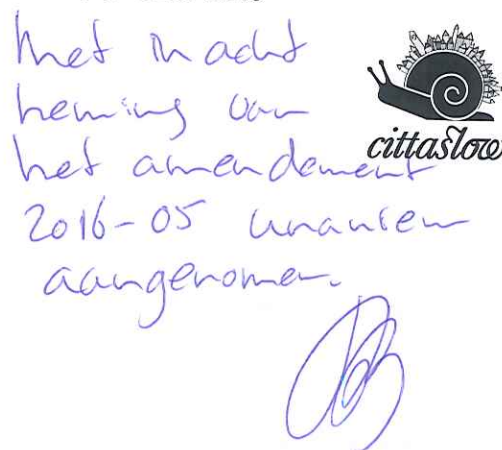 Met in acht
neming van
het amendement
2016-05 unaniem
aangenomen.
cittaslow